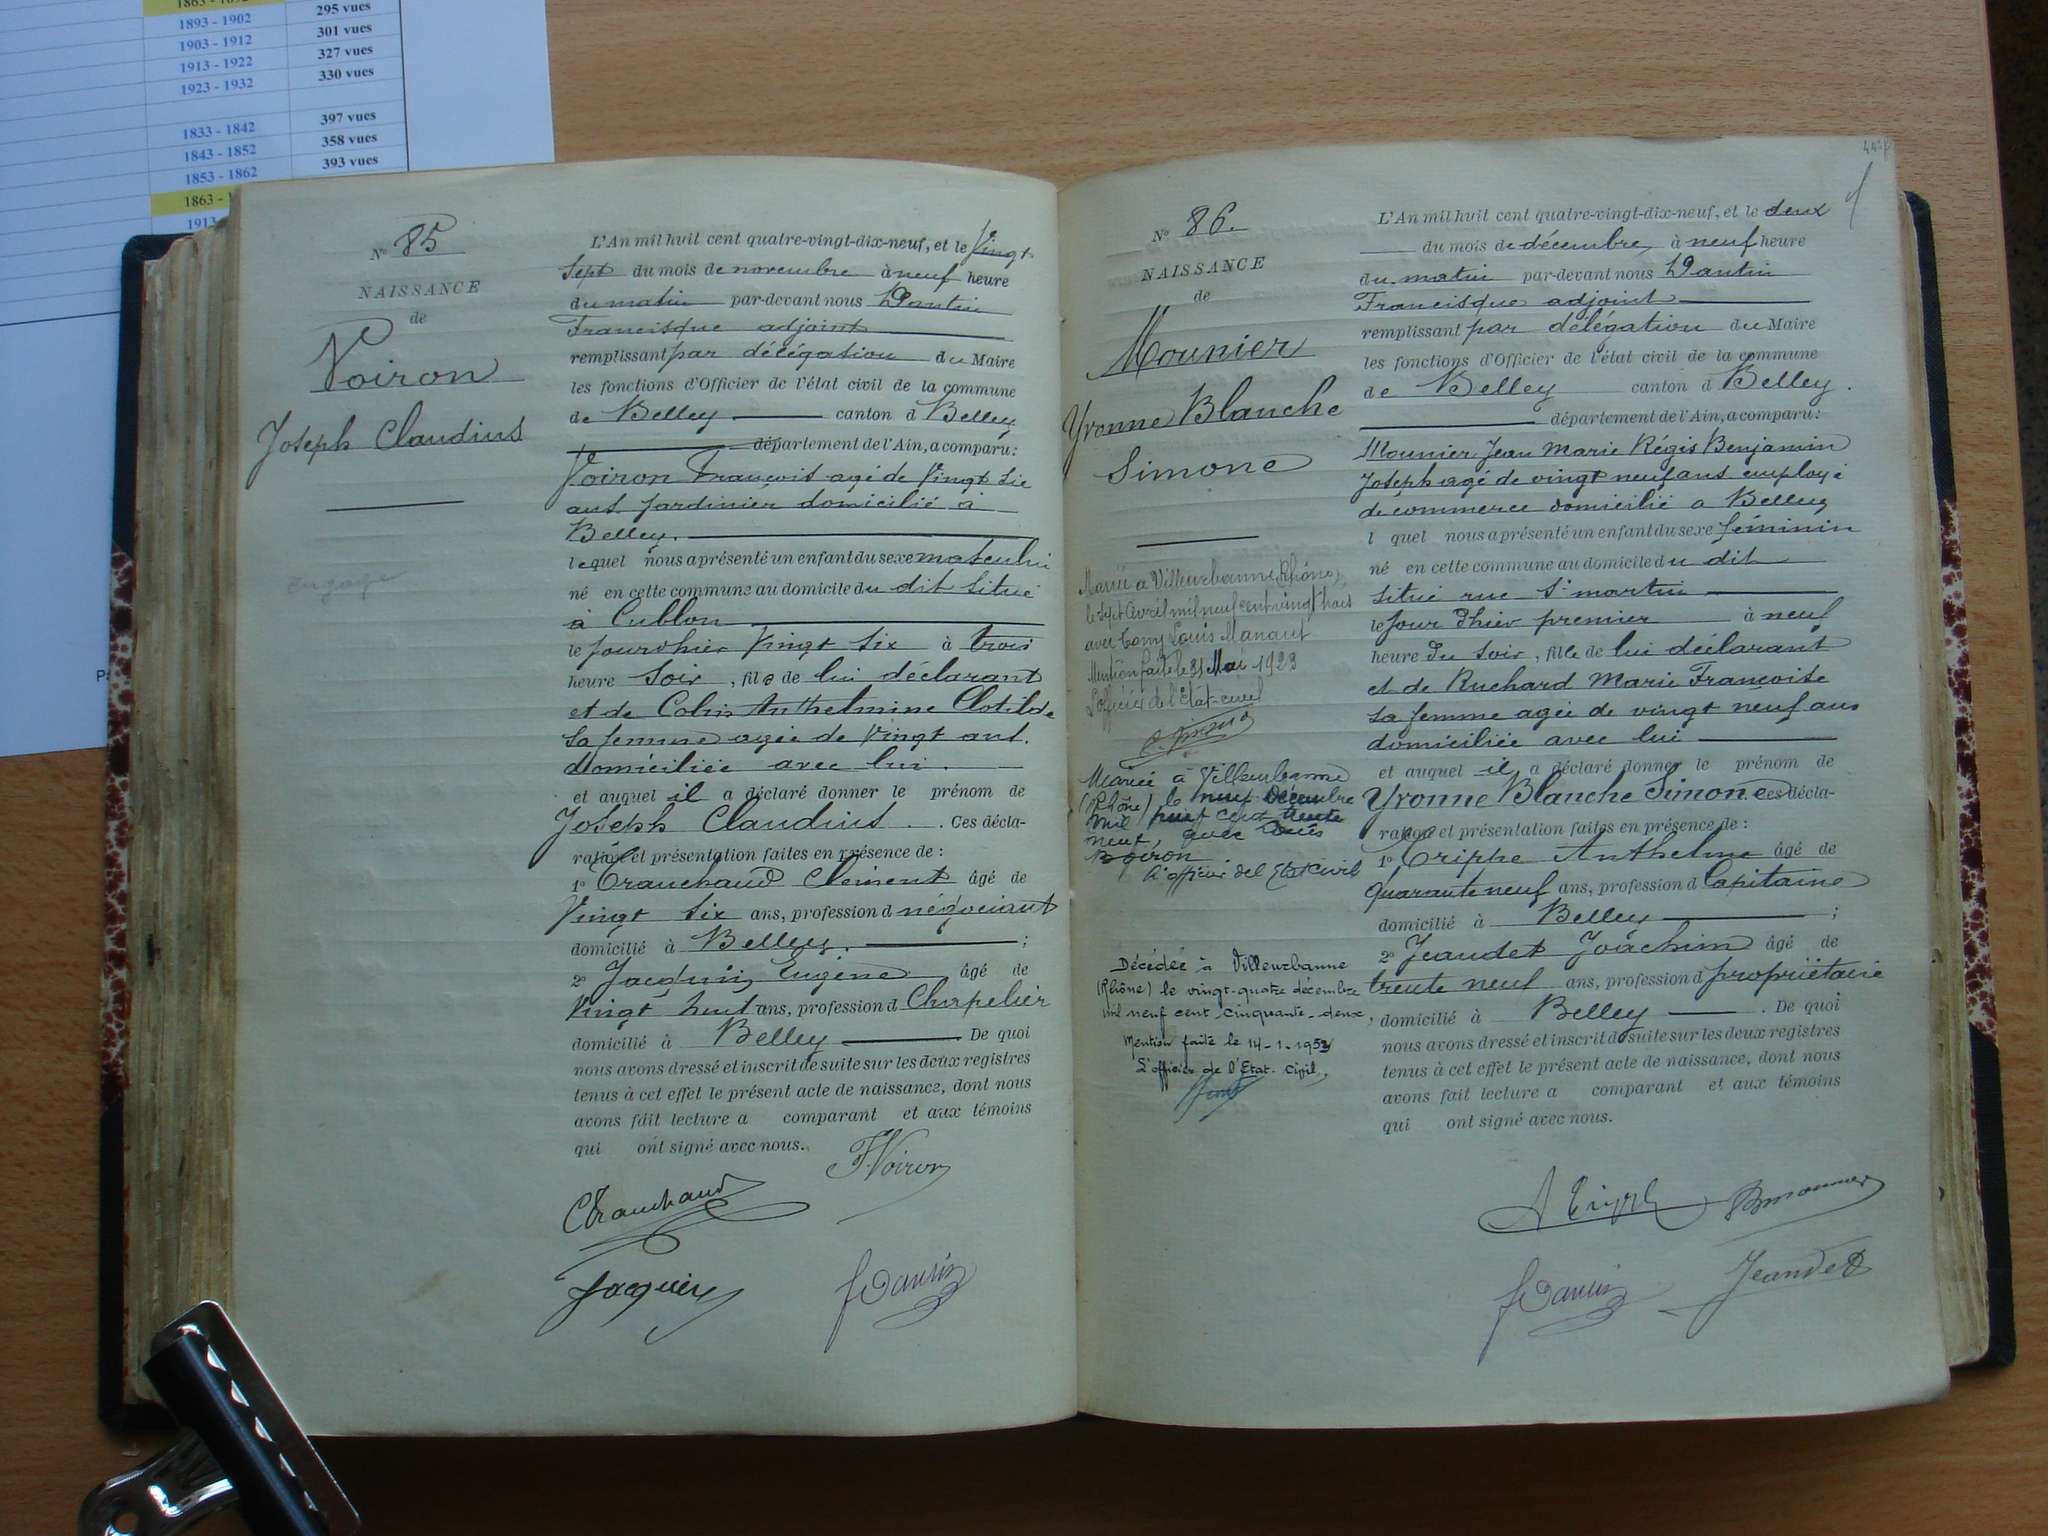 1863 - 1892
295 vues
1893 - 1902
301 vues
1903 - 1912
327 vues
1913 - 1922
330 vues
1923 - 1932
397 vues
1833 - 1842
358 vues
1843 - 1852
393 vues
1853 - 1862
1863 - 1
1913
Nº 85
NAISSANCE
de
Voiron
Joseph Claudius
engagé
L'An mil huit cent quatre-vingt-dix-neuf, et le Vingt
Sept du mois de novembre à neuf heure
du matin par-devant nous Dantin
Francisque adjoint
remplissant par délégation du Maire
les fonctions d'Officier de l'état civil de la commune
de Belley canton d Belley
département de l'Ain, a comparu:
Voiron François agé de Vingt Six
ans Jardinier domicilié à
Belley.
lequel nous a présenté un enfant du sexe masculin
né en cette commune au domicile du dit Situé
à
le jour d'hier Vingt Six à trois
heure Soir, fils de lui déclarant
et de Anthelmine Clotilde
Sa femme agée de Vingt ans.
domiciliée avec lui.
et auquel il a déclaré donner le prénom de
Joseph Claudius. Ces décla-
ration et présentation faites en présence de :
1º Tranchand Clément âgé de
Vingt Six ans, profession d négociant
domicilié à Belley. ;
2º Jacquin Eugène âgé de
Vingt huit ans, profession d Chapelier
domicilié à Belley De quoi
nous avons dressé et inscrit de suite sur les deux registres
tenus à cet effet le présent acte de naissance, dont nous
avons fait lecture a comparant et aux témoins
qui ont signé avec nous.
FVoiron
CTranchand
Jacquin
FDantin
Nº 86.
NAISSANCE
de
Mounier
Yvonne Blanche
Simone
Mariée à Villeurbanne, Rhône,
le sept Avril mil neuf cent vingt trois
avec Tony Louis Manaut
Mention faite le 31 Mai 1923
L'officier de l'Etat-civil
Mariée à Villeurbanne
(Rhône) le neuf Décembre
mil neuf cent trente
neuf, avec Louis
L'officier de l'Etat Civil
Décédée à Villeurbanne
(Rhône) le vingt-quatre décembre
mil neuf cent cinquante-deux,
Mention faite le 14-1-1953
L'officier de l'Etat-Civil,
L'An mil huit cent quatre-vingt-dix-neuf, et le deux
du mois de décembre, à neuf heure
du matin par-devant nous Dantin
Francisque adjoint
remplissant par délégation du Maire
les fonctions d'Officier de l'état civil de la commune
de Belley canton d Belley.
département de l'Ain, a comparu:
Mounier Jean Marie Régis Benjamin
Joseph agé de vingt neuf ans employé
de commerce domicilié a Belley
l quel nous a présenté un enfant du sexe féminin
né en cette commune au domicile du dit
situé rue St martin
le jour d'hier premier à neuf
heure du soir, fille de lui déclarant
et de Ruchard Marie Françoise
Sa femme agée de vingt neuf ans
domiciliée avec lui
et auquel il a déclaré donner le prénom de
Yvonne Blanche Simone Ces décla-
ration et présentation faites en présence de :
1º Trippe Anthelme âgé de
Quarante neuf ans, profession d Capitaine
domicilié à Belley ;
2º Jeandet Joachim âgé de
trente neuf ans, profession d propriétaire
domicilié à Belley. De quoi
nous avons dressé et inscrit de suite sur les deux registres
tenus à cet effet le présent acte de naissance, dont nous
avons fait lecture a comparant et aux témoins
qui ont signé avec nous.
FDantin
Jeandet